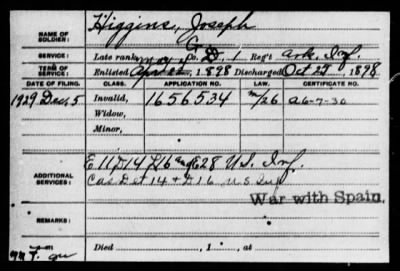 NAME OF SOLDIER: Higgins, Joseph
G
SERVICE: Late rank, Co. D, 1 Reg't Ark. Inf.
TERM OF SERVICE: Enlisted Apr 22, 1898 Discharged Oct 25, 1898
DATE OF FILING. CLASS. APPLICATION NO. LAW. CERTIFICATE NO.
1929 Dec, 5 Invalid, 1656534 a 6-7-30
Widow,
Minor,
E 11 D 14 and E 28 U.S. Inf.
ADDITIONAL SERVICES: Cas Det 14 & D 16 U S Inf
War with Spain.
REMARKS:
Died , 1 , at